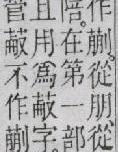 作蒯。從朋從
陪。在第一部
且用爲蔽字。
菅蔽不作蒯